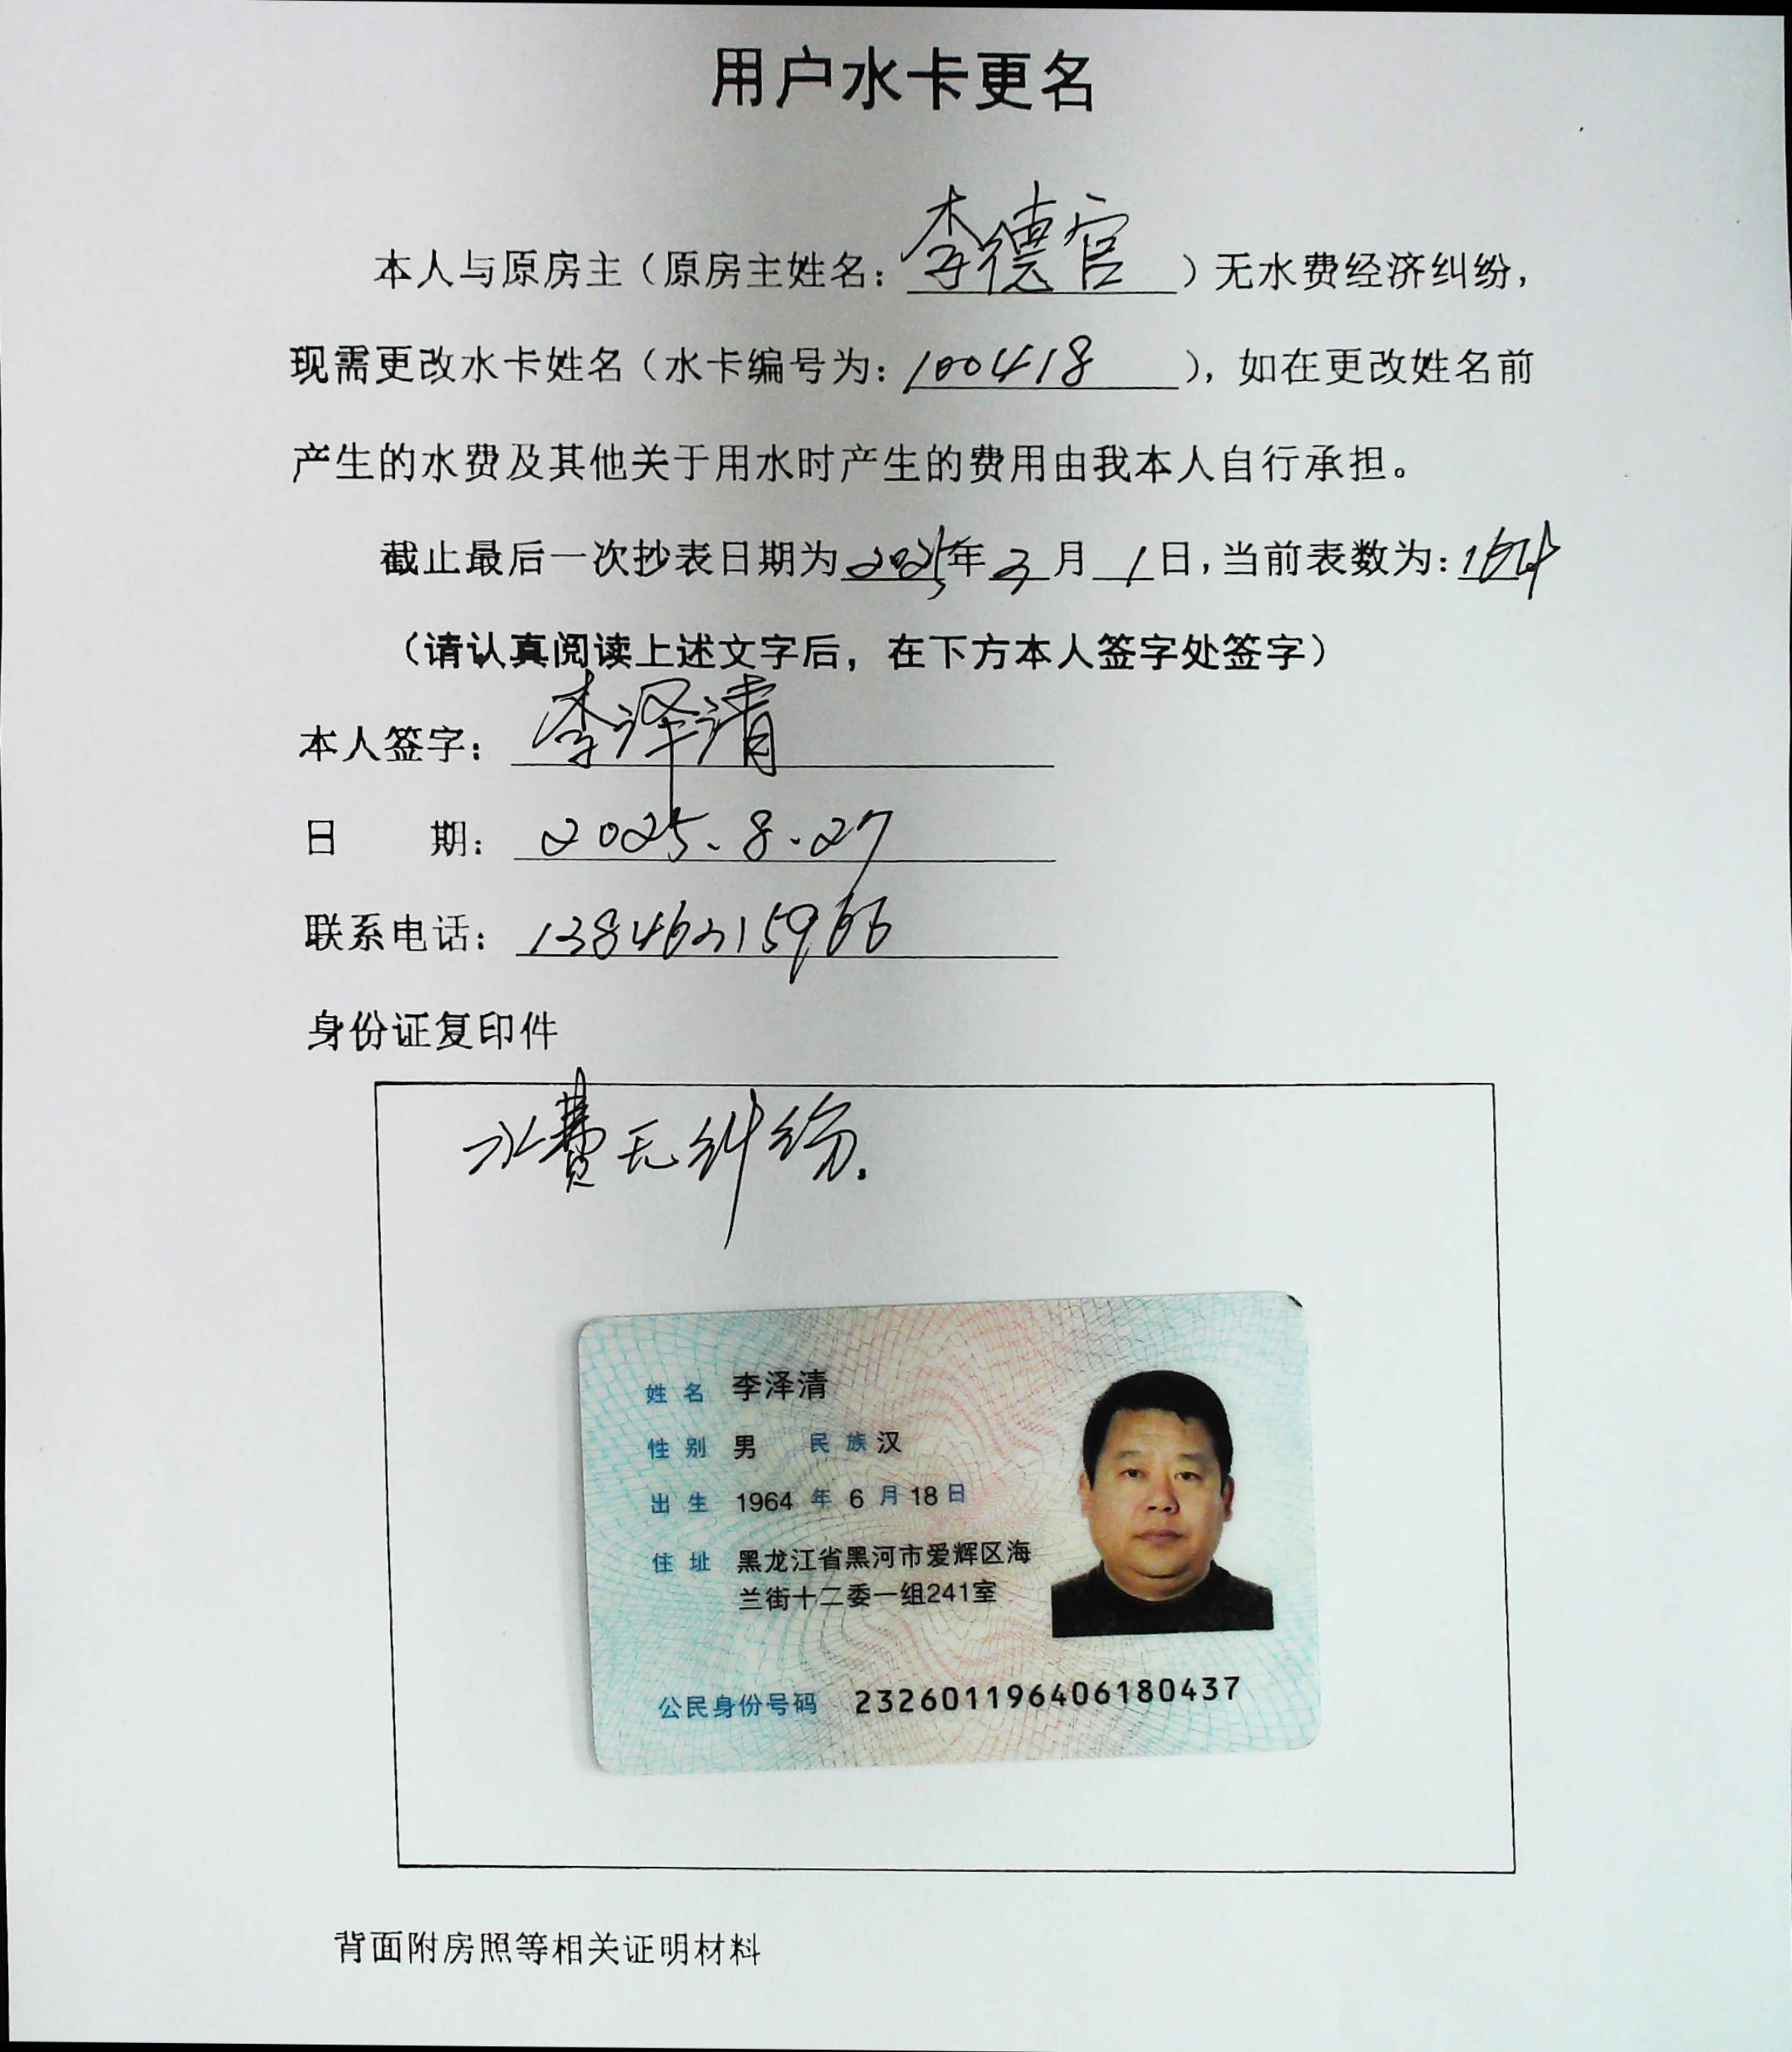 用户水卡更名
本人与原房主（原房主姓名：李德官）无水费经济纠纷，
现需更改水卡姓名（水卡编号为：100418），如在更改姓名前
产生的水费及其他关于用水时产生的费用由我本人自行承担。
截止最后一次抄表日期为2025年3月1日，当前表数为：
（请认真阅读上述文字后，在下方本人签字处签字）
本人签字：李泽清
日 期：2025.8.27
联系电话：13846315966
身份证复印件
水费无纠纷.
姓名 李泽清
性别 男 民族 汉
出生 1964年6月18日
住址 黑龙江省黑河市爱辉区海
兰街十二委一组241室
公民身份号码 232601196406180437
背面附房照等相关证明材料